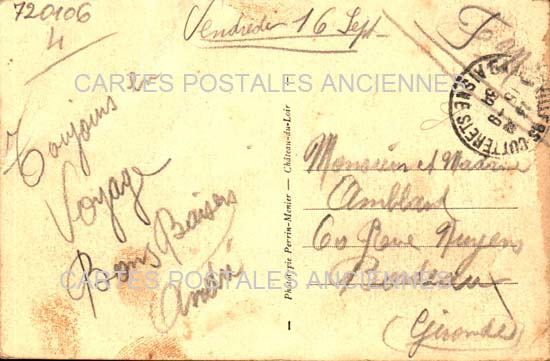 720106
4
Vendredi 16 Sept.
CARTES POSTALES ANCIENNES
Toujours en
Voyage
Bons Baisers
André
Phototypie Perrin-Monier — Château-du-Loir
VILLERS-COTTERETS
AISNE
Monsieur et Madame
Amblard
60 Rue Nuyens
Bordeaux
(Gironde)
CARTES POSTALES ANCIENNES